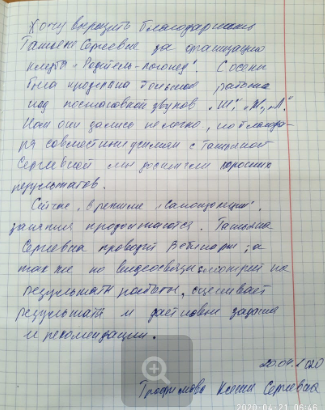 Хочу выразить благодарность
Татьяне Сергеевне за организацию
клуба "Родитель-логопед". С осени
была проделана работа
над постановкой звуков "Ш", "Ж", "Л".
Нам они дались не легко, но благода-
ря совместным усилиям с Татьяной
Сергеевной мы достигли хороших
результатов.
Сейчас, в режиме "самоизоляции",
занятия продолжаются. Татьяна
Сергеевна проводит вебинары, а
так же по видеосвязи смотрит на
результаты работы, оценивает
результат и даёт новые задания
и рекомендации.
20.04.2020
Трофимова Ксения Сергеевна
2020-04-21 09:46